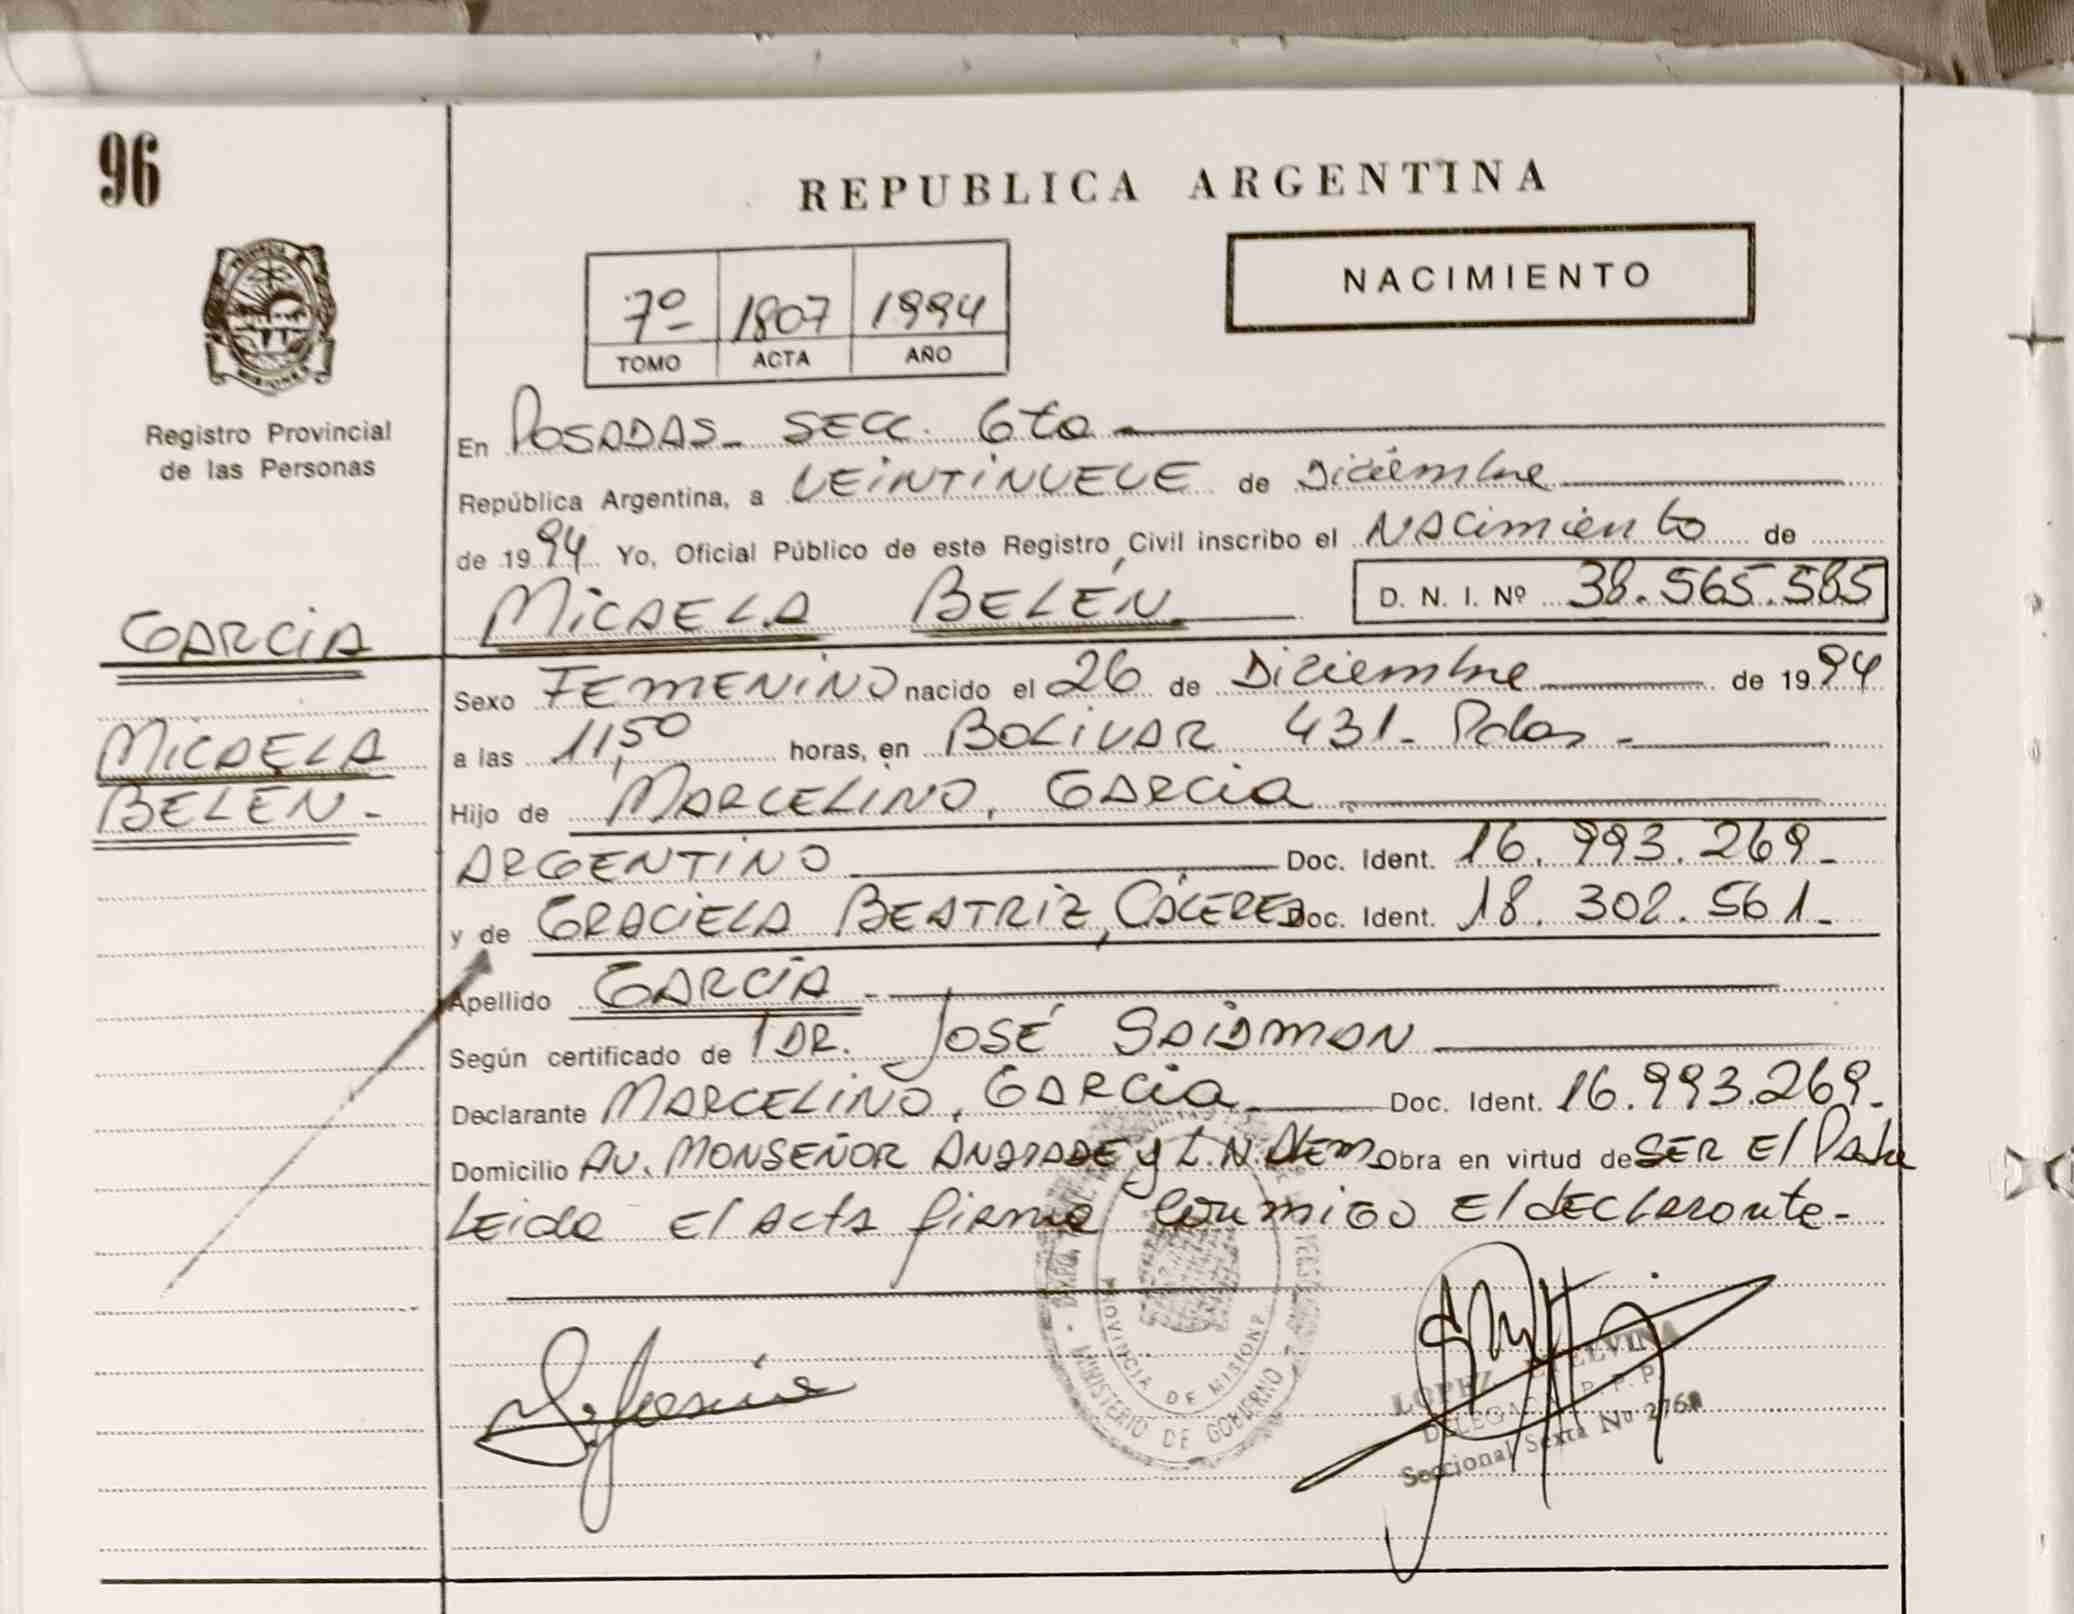 96
REPUBLICA ARGENTINA
NACIMIENTO
7º 1807 1994
TOMO ACTA AÑO
Registro Provincial
de las Personas
En POSADAS - SECC. 6ta
República Argentina, a VEINTINUEVE de Diciembre
de 1994 Yo, Oficial Público de este Registro Civil inscribo el NACimiento de
MICAELA BELÉN D. N. I. Nº 38.565.585
GARCIA
MICAELA
BELÉN -
Sexo FEMENINO nacido el 26 de Diciembre de 1994
a las 11,50 horas, en BOLIVAR 431 - Pdas -
Hijo de MARCELINO, GARCIA
ARGENTINO Doc. Ident. 16.993.269 -
y de GRACIELA BEATRIZ, CÁCERES Doc. Ident. 18.302.561 -
Apellido GARCÍA -
Según certificado de DR. JOSÉ SAIDMAN
Declarante MARCELINO, GARCIA Doc. Ident. 16.993.269 -
Domicilio AV. MONSEÑOR ANDRADE y L.N. ALEM Obra en virtud de SER El Padre
LEida El ACtA firma conmigo El dEClarante -
PROVINCIA DE MISIONES
MINISTERIO DE GOBIERNO
LOPEZ ETELVINA
DELEGADA R. P. P.
Seccional Sexta Nº 276